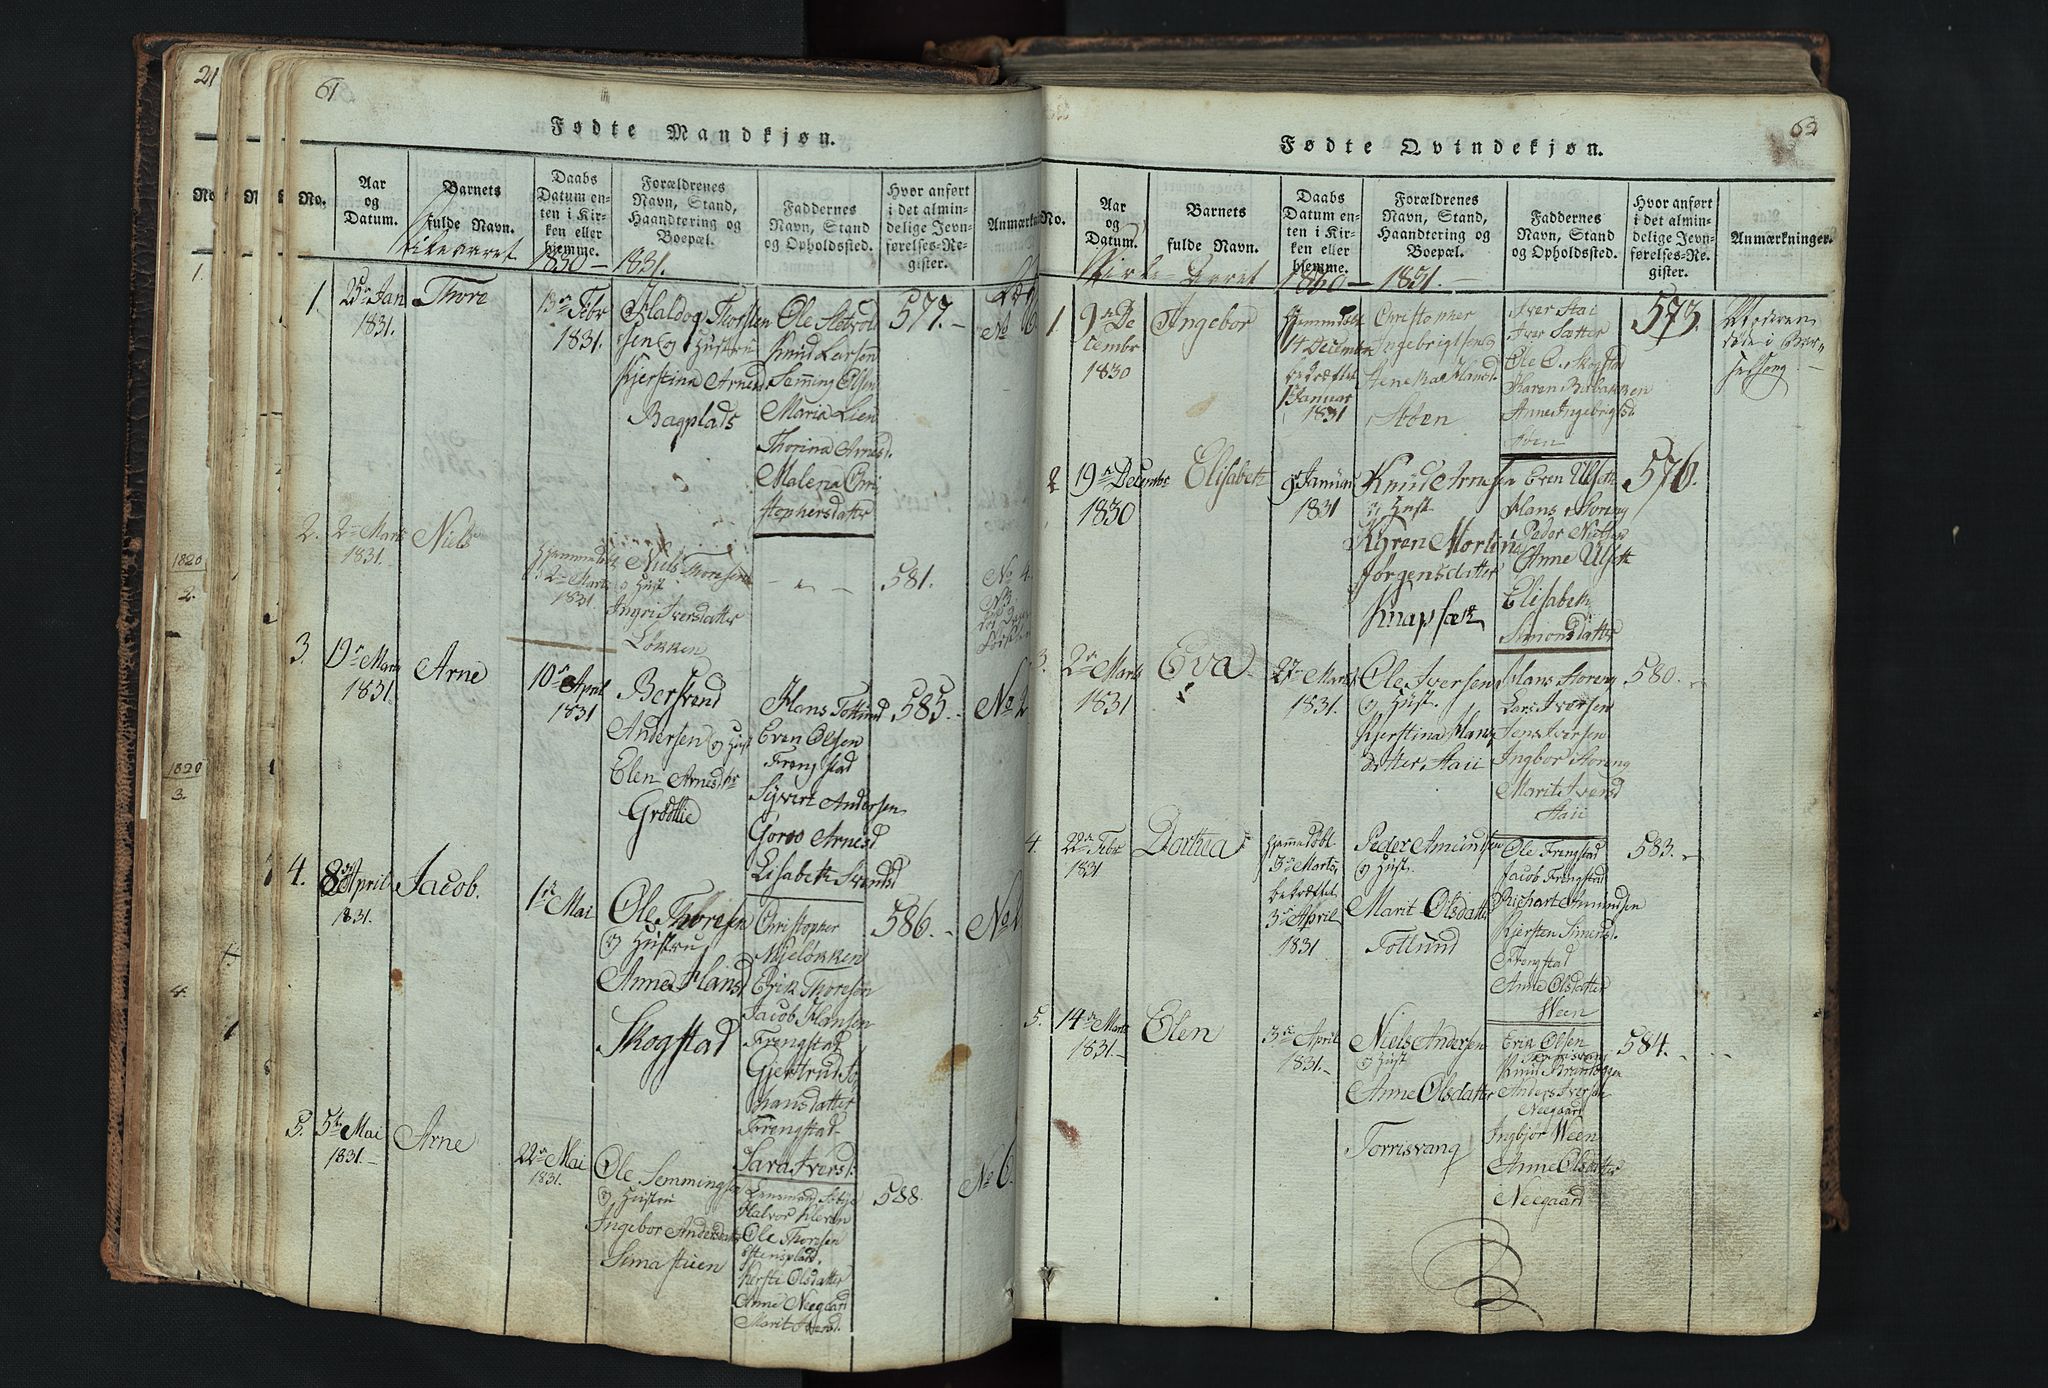 21
61
Fødte Mandkjøn.
No.
Aar og Datum.
Barnets fulde Navn.
Daabs Datum enten i Kirken eller hjemme.
Forældrenes Navn, Stand, Haandtering og Boepæl.
Faddernes Navn, Stand og Opholdssted.
Hvor anført i det almindelige Jevnførelses-Register.
Anmærk
Kirkeaaret 1830 - 1831.
1.
25de Jan
1831.
Thore
13de Febr
1831.
Haldog Thorsten
sen og Hustru
Kjerstina Arnesd
Bagplads
Ole Sletvold
Knud Larsen
Semming Olsen
Maria Lien
Thorina Arnesd.
Maleria Chri
stophersdatter
577.
2.
2den Marts
1831.
Niels
Hjemmedøbt
2den Marts
1831.
Niels Thoresen
og Hust
Ingri Iversdatter
Løkken
581.
No 4.
3.
19de Marts
1831.
Arne
10de April
1831
Bersvend
Andersen og Hust
Elen Arnesdtr
Grødtlie
Hans Totlund
Even Olsen
Frengstad
Syvert Andersen
Goroo Arnesd
Lisabeth Svendsd
585.
No 2
4.
8de April
1831.
Jacob.
1ste Mai
Ole Thoresen
og Hustru
Anne Hansd
Skogstad
Christopher
Mjeløkken
Erik Thoresen
Jacob Hansen
Frengstad
Gjertrud Jo
hansdatter
Frengstad
Sara Iversd.
586.
No
5.
5te Mai
1831.
Arne
22de Mai
1831.
Ole Semmingsen
og Hustru
Ingebor Andersdatter
Simastuen
Lensmand
Halvor Kleven
Ole Thoresen
Estensplads.
Kersti Olsdatter
Anne Neegaard
Marit
588.
No 6.
62
Fødte Qvindekjøn.
No.
Aar og Datum.
Barnets fulde Navn.
Daabs Datum enten i Kirken eller hjemme.
Forældrenes Navn, Stand, Haandtering og Boepæl.
Faddernes Navn, Stand og Opholdssted.
Hvor anført i det almindelige Jevnførelses-Register.
Anmærkninger.
Kirke-Aaret 1830 - 1831.
1
9de De
cembr
1830
Ingebor
Hjemmedøbt
14 Decembr
bekræftet
1 Januar
1831
Christopher
Ingebrigtsen og
Hansd.
Støen
Iver Hai
Iver Sætter
Ole C. Skogstad
Karen Bubakken
Anne Ingebrigtsd.
Støen
573.
Moderen
døde i Bar-
selseng.
2
19de Decembr
1830
Elisabeth
9de Januar
1831
Knud Arnesen
og Hust
Karen Morten
Jørgensdatter
Knapsæk
Even Ulseth
Hans Horeng
Peder Nielsen
Anne Ulseth
Elisabeth
Simonsdatter
576.
3.
2den Marts
1831
Eva
27de Marts
1831.
Ole Iversen
og Hust.
Kjerstina Hans
datter Haii
Hans Horeng
Lars Iversen
Jens Iversen
Ingbor Horeng
Marit Iversd
Haii
580.
4.
22de Febr
1831
Dorthea
Hjemmedøbt
3de Marts,
bekræftet
3de April
1831
Peder Amundsen
og Hust.
Marit Olsdatter
Totlund
Ole Frengstad
Jacob Frengstad
Richart Amundsen
Kjersten Simensd.
Frengstad
Anne Olsdatter
Ween
583.
5.
14de Marts
1831.
Elen
3de April
1831.
Niels Andersen
og Hust
Anne Olsdatter
Torrisvang
Erik Olsen
Torrisvang
Knud Brandeggen
Anders Iversen
Neegaard
Ingbjør Ween
Anne Olsdatter
Neegaard
584.
1.
1820
2.
1820
3.
4.